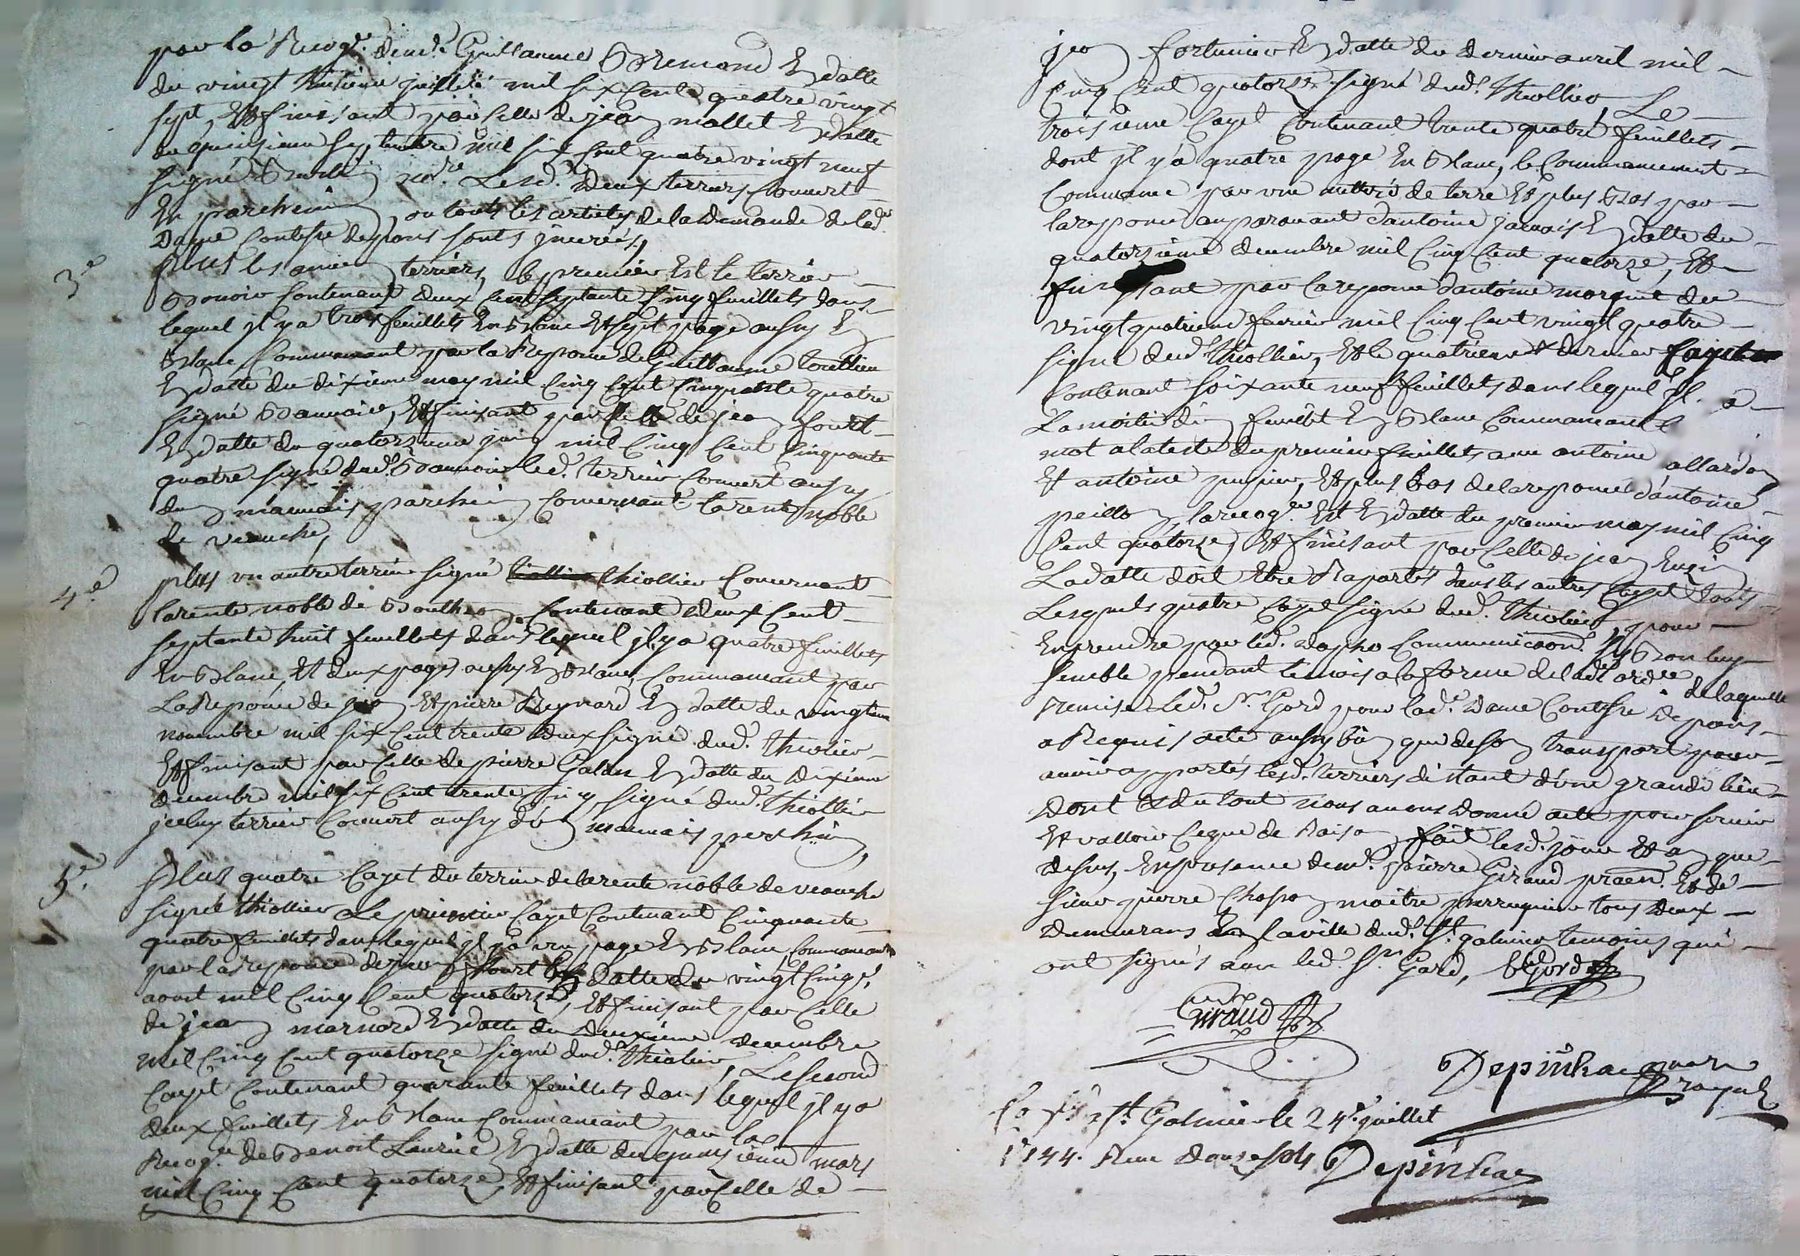 par la Recog.on dud.t Guillaume Bremond En datte
du vingt huitieme juillet mil six cents quatre vingt
sept, Et finissant par celle de jean mallet En datte
du quinzieme septembre mil six cent quatre vingt neuf
signé no.re Lesd. deux terriers couvert
En parchemin, ou touts les articles de la demande de lad.e
Dame Contesse de pons sonts jncerés,
3.e plus les anciens terriers, le premier Est le terrier
contenant deux cent septante cinq feuillets dans
lequel jl y a trois feuillets En blanc Et sept page aussy En
blanc Commencant par la Reponce de Guillaume
En datte du dixieme may mil cinq cent cinquante quatre
signé Et finisant par celle de jean
En datte du quatorzieme juin mil cinq cent cinquante
quatre signé dud.t led.t terrier couvert aussy
dun mauvais parchemin Concernant la rente noble
de veauche,
4.e plus un autre terrier signé thiollier Concernant
la rente noble de Bouthéon, Contenant deux cent
septante huit feuillets dans lequel jl y a quatre feuillets
En blanc, Et deux pages aussy En blanc, Commancant par
La Reponce de jean Et pierre Reynard En datte du vingtieme
novembre mil six cent trente deux signé dud.t thiolier
Et finisant par celle de pierre Galan En datte du dixieme
decembre mil six cent trente cinq signé dud.t thiollier
jceluy terrier Couvert aussy dun mauvais parchemin,
5.e Plus quatre Cayet du terrier de la rente noble de veauche
signé thiollier Le premier Cayet Contenant Cinquante
quatre feuillets dans lequel jl y a une page En blanc, Commancant
par la reponce de datte du vingt cinq.e
aoust mil cinq cent quatorze, Et finisant par celle
de jean marnord En datte du deuxieme decembre
mil cinq cent quatorze signé dud.t thiolier, Le segond
Cayet Contenant quarante feuillets dans lequel jl y a
deux feuillets En blanc Commancant par la
Recog.on de Benoit Laurie En datte du quinzieme mars
mil cinq cent quatorze, Et finisant par celle de
jean fortunier En datte du dernier avril mil
cinq cent quatorze signé dud.t thiollier, Le
troisieme Cayet Contenant trente quatre feuillets
dont jl y a quatre page En blanc, le Commancement
Commance par une de terre Et plus bas par
la reponce auparavant dantoine jamois En datte du
quatorzieme decembre mil cinq cent quatorze, Et
finisant par la reponce dantoine morquet du
vingt quatrieme fevrier mil cinq cent vingt quatre
signé dud.t thiollier, Et le quatrieme & dernier Cayet
Contenant soixante neuf feuillets dans lequel jl a
La moitié dun feuillet En blanc Commancant
mot a la teste du premier feuillets avec antoine allardon
Et antoine pupier, Et plus bas de la reponce dantoine
peillon, la recog.on Est En datte du premier may mil cinq
cent quatorze, Et finisant par celle de jean
La datte doit Etre Raportés dans les autres Cayet touts
Lesquels quatre Cayet signé dud.t thiolier, pour
En prendre par led.t dapho Communicaon. sy bon luy
semble pendant le mois a la forme de lad.e ord.ce de laquelle
remise led.t S.r Gord pour lad.e Dame Contesse de pons
a Requis acte aussy bien que de son transport pour
avoir apportés lesd.ts terriers distant dune grande lieu
Dont & du tout nous avons donné acte pour servir
Et valloir ce que de Raison, fait lesd.t jour Et an que
dessus, En presence de m.e pierre Giraud praen. Et de
sieur pierre Chapon maitre perruquier tous deux
demeurans En la ville dud.t St. galmier temoins qui
ont signés avec led.t S.r Gord, Gord
Giraud
Depinhac
Co S.t Galmier le 24.e juillet
1744. Reçu douze sols Depinhac